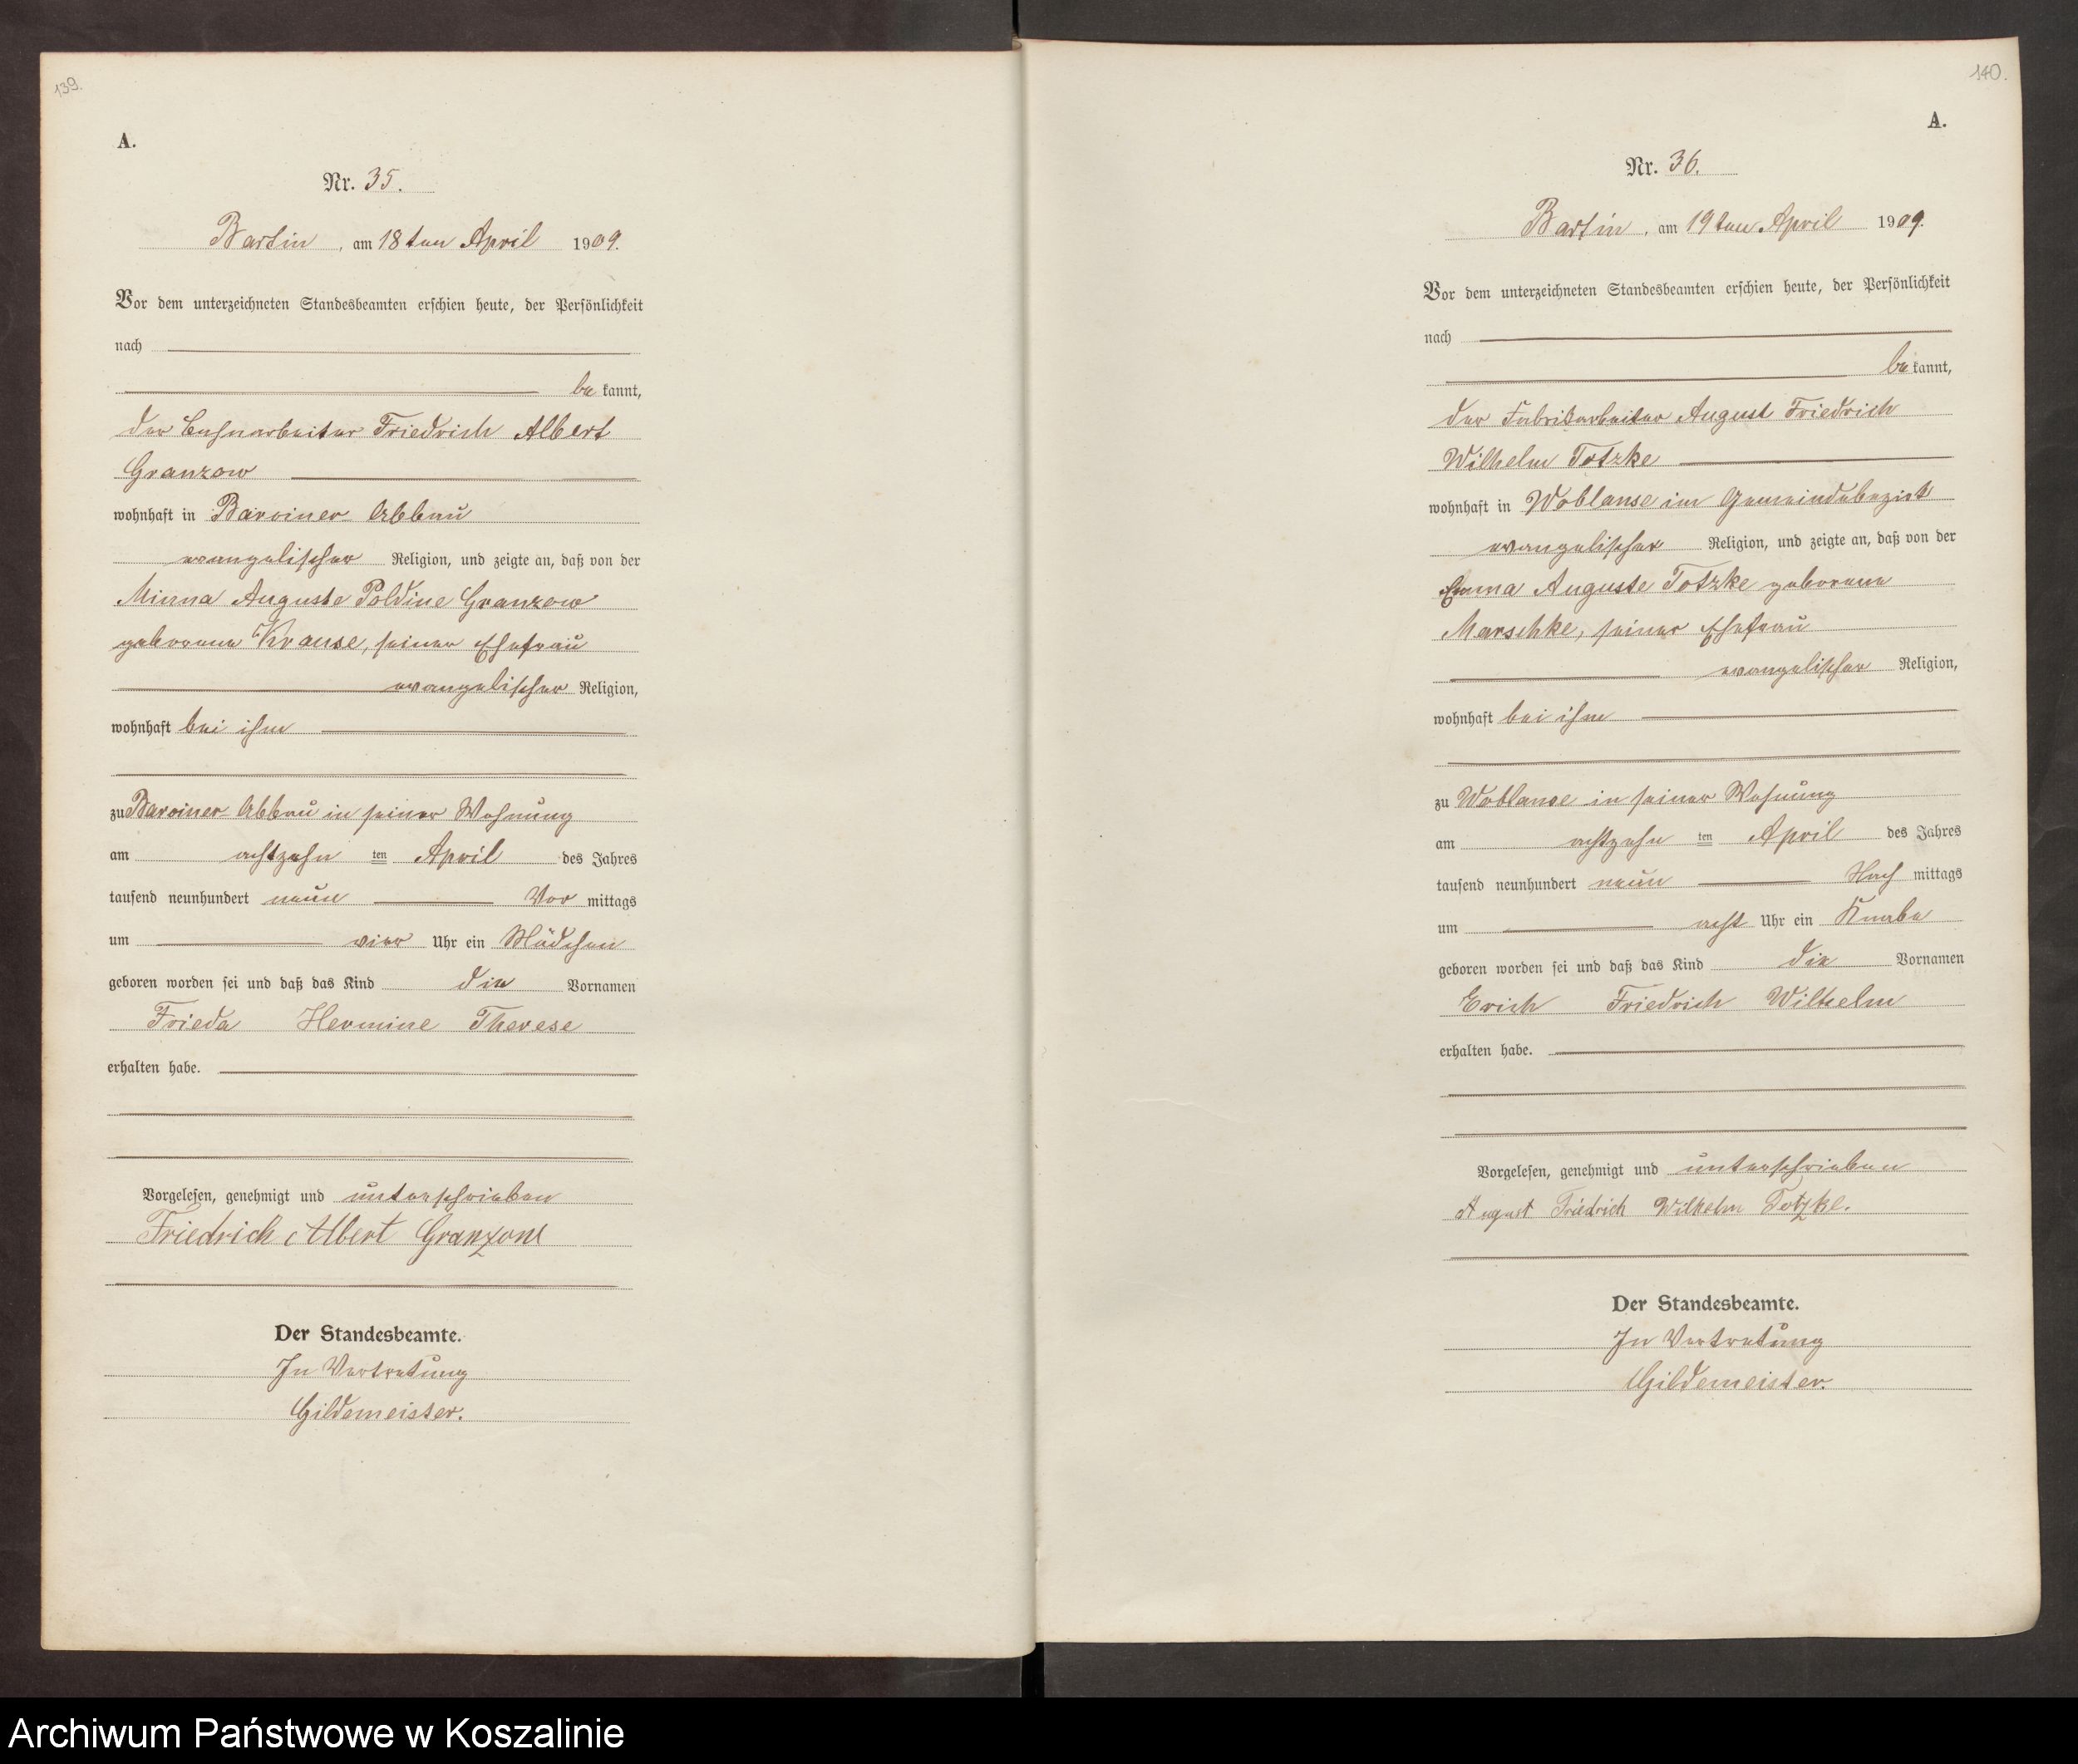 139.
A.
Nr. 35.
Bartin, am 18ten April 1909.
Vor dem unterzeichneten Standesbeamten erschien heute, der Persönlichkeit
nach
bekannt,
der Bahnarbeiter Friedrich Albert
Granzow
wohnhaft in Barviner Abbau
evangelischer Religion, und zeigte an, daß von der
Minna Auguste Poldine Granzow
geborene Krause, seiner Ehefrau
evangelischer Religion,
wohnhaft bei ihm
zu Barviner Abbau in seiner Wohnung
am achtzehn ten April des Jahres
tausend neunhundert neun Vor mittags
um vier Uhr ein Mädchen
geboren worden sei und daß das Kind die Vornamen
Frieda Hermine Therese
erhalten habe.
Vorgelesen, genehmigt und unterschrieben
Friedrich Albert Granzow
Der Standesbeamte.
In Vertretung
Gildemeister.
140.
A.
Nr. 36.
Bartin, am 19ten April 1909.
Vor dem unterzeichneten Standesbeamten erschien heute, der Persönlichkeit
nach
bekannt,
der Fabrikarbeiter August Friedrich
Wilhelm Totzke
wohnhaft in Woblanse im Gemeindebezirk
evangelischer Religion, und zeigte an, daß von der
Emma Auguste Totzke geborene
Marschke, seiner Ehefrau
evangelischer Religion,
wohnhaft bei ihm
zu Woblanse in seiner Wohnung
am achtzehn ten April des Jahres
tausend neunhundert neun Nach mittags
um acht Uhr ein Knabe
geboren worden sei und daß das Kind die Vornamen
Erich Friedrich Wilhelm
erhalten habe.
Vorgelesen, genehmigt und unterschrieben
August Friedrich Wilhelm Totzke.
Der Standesbeamte.
In Vertretung
Gildemeister.
Archiwum Państwowe w Koszalinie